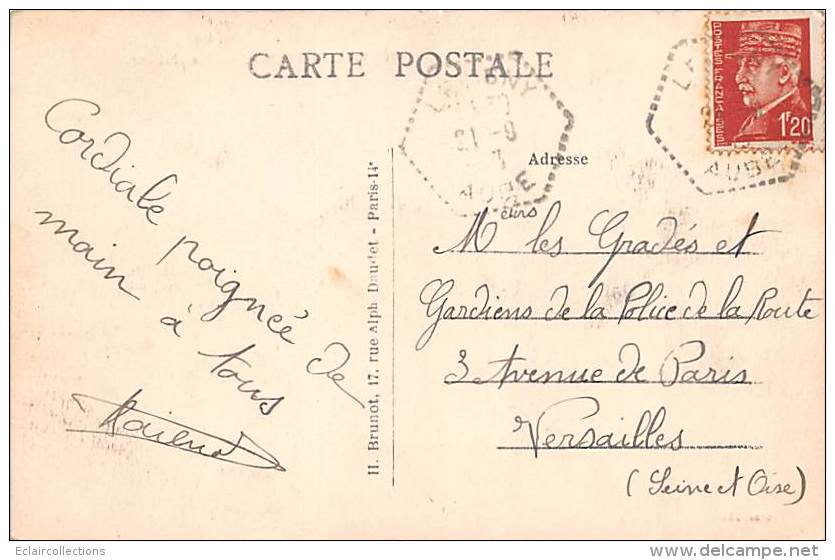 CARTE POSTALE
POSTES FRANÇAISES
1F20
21-9
AUBE
AUBE
Adresse
Cordiale poignée de
main à tous
H. Brunot, 17, rue Alph Daudet - Paris-14e
Meurs les Gradés et
Gardiens de la Police de la Route
3 Avenue de Paris
Versailles
(Seine et Oise)
Eclaircollections
www.delcampe.net